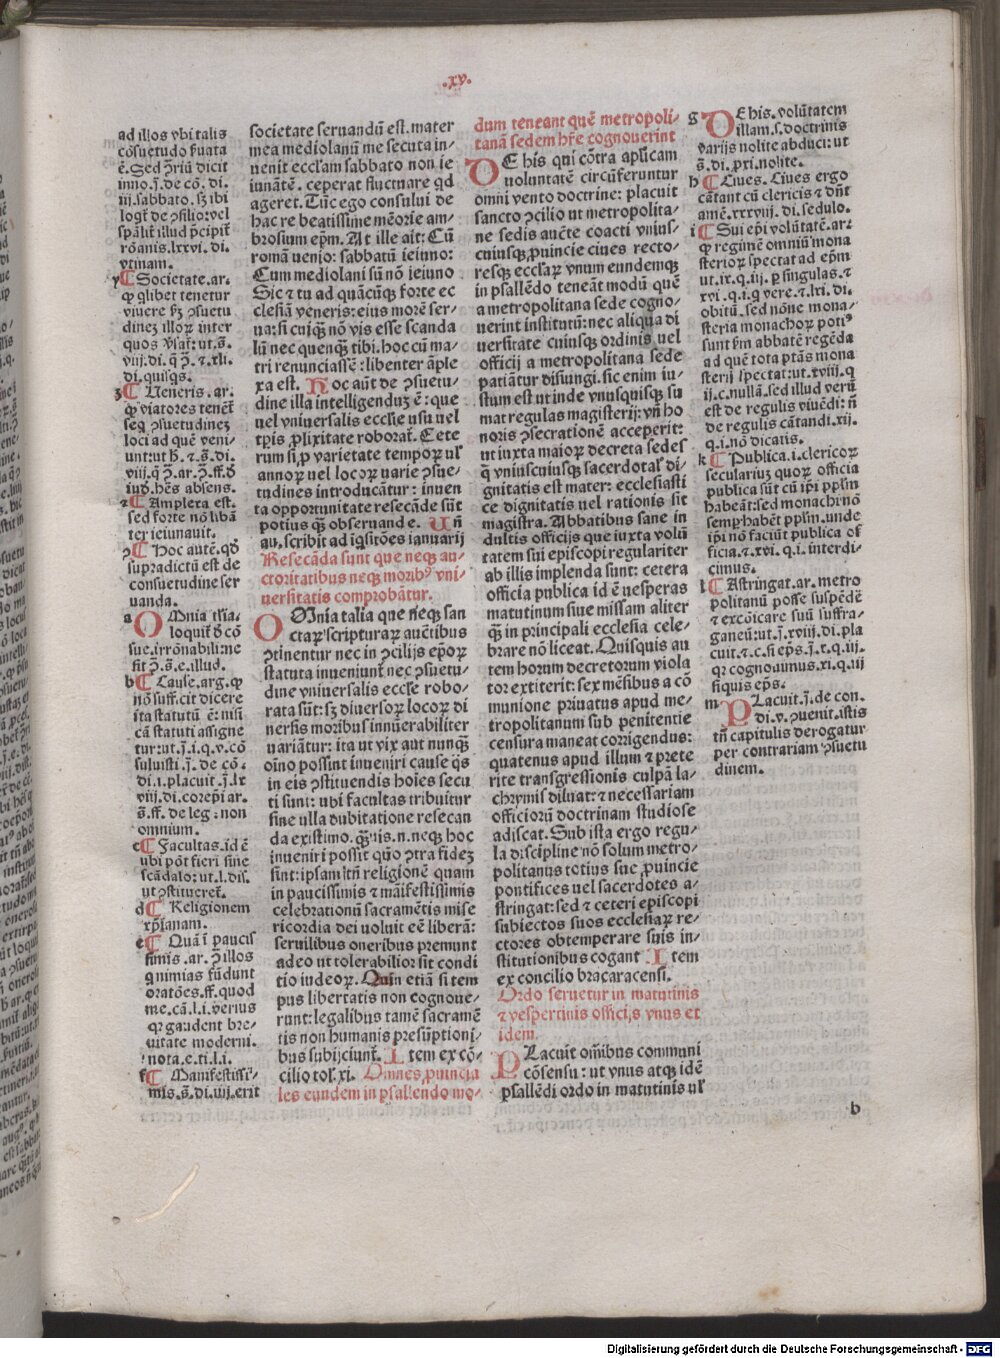 .xv.
ad illos vbi talis
cōsuetudo ẜuata
ē. Sed ꝯ̄riū dicit
inno. j̄. de cō. di.
iij. sabbato. sꝫ ibi
logt̄ de ꝯsilio: vel
spālit̄ illud p̄cipit̄
rōanis. lxxvi. di.
vtinam.
y Societate. ar.
ꝙ qlibet tenetur
viuere ẜm ꝯsuetu
dineꝫ illoꝝ inter
quos ꝟsat̄: ut. s̄.
viij. di. q ꝯ̄. ⁊ .xli.
di. quisqs.
ʒ Veneris. ar.
ꝙ viatores tenēt̄
seq ꝯsuetudineꝫ
loci ad quē veni-
unt: ut
viij. q
iud. hēs absens.
⁊ Amplexa est.
sed forte nō libā
ter ieiunauit.
ꝯ Hoc autē. qd̄
supradictū est de
consuetudine ser
uanda.
a OMnia
loquit̄
sue. irrōnabili: ne
fit ꝯ̄. s̄. e. illud.
b Cause. arg. ꝙ
nō suff. cit dicere
ita statutū ē: nisi
cā statuti assigne
tur: ut. j̄. i. q. v. cō
suluisti. j̄. de cō.
di. i. placuit. j̄. lx
viij. di. corepi ar.
s̄. ff. de leg: non
omnium.
c Facultas. id ē
ubi pōt fieri sine
scādalo: ut. l. dis.
ut ꝯstitueret̄.
d Religionem
xp̄ianam.
e Quā ī paucis
simis. ar. ꝯ̄ illos
q nimias fūdunt
oratōes. ff. quod
me. cā. l. i. verius
qꝛ gaudent bre-
uitate moderni.
nota. e. ti. l. i.
f Manifestissi-
mis. s̄. di. iiij. erit
societate seruandū est. mater
mea mediolanū me secuta in-
uenit eccl̄am sabbato non ie
iunātē. ceperat fluctuare qd
ageret. Tūc ego consului de
hac re beatissime mēorie am-
brosium ep̄m. At ille ait: Cū
romā uenio: sabbatū ieiuno:
Cum mediolani sū nō ieiuno
Sic ⁊ tu ad quācūqꝫ forte ec
clesiā veneris: eius morē ser-
ua: si cuiqꝫ nō vis esse scanda
lū nec quenqꝫ tibi. hoc cū ma-
tri renunciassē: libenter āple
xa est. Hoc aūt de ꝯsuetu-
dine illa intelligenduꝫ ē: que
uel vniuersalis eccl̄ie usu uel
tp̄is ꝓlixitate roborat̄. Cete
rum si ꝓ varietate tempoꝝ ul̓
annoꝝ uel locoꝝ uarie ꝯsue-
tudines introducātur: inuen
ta opportunitate resecāde sūt
potius q̄ꝫ obseruande. Vn̄
au. scribit ad iq̄sitōes ianuarij
Resecāda sunt que neqꝫ au-
ctoritatibus neqꝫ moribꝰ vni-
uersitatis comprobātur.
OMnia talia que neqꝫ san
ctaꝝ scripturaꝝ auctibus
ꝯtinentur nec in ꝯcilijs ep̄oꝝ
statuta inueniunt̄ nec ꝯsuetu-
dine vniuersalis eccl̄se robo-
rata sūt: sꝫ diuersoꝝ locoꝝ di
uersis moribus innūerabiliter
uariātur: ita ut vix aut nunqꝫ
oīno possint inueniri cause q̄s
in eis ꝯstituendis hoīes secu
ti sunt: ubi facultas tribuitur
sine ulla dubitatione resecan
da existimo. q̄ꝫuis. n. neqꝫ hoc
inueniri possit quō ꝯtra fideꝫ
sint: ipsam tn̄ religionē quam
in paucissimis ⁊ māifestissimis
celebrationū sacramētis mise
ricordia dei uoluit eē liberā:
seruilibus oneribus premunt
adeo ut tolerabilior sit condi
tio iudeoꝝ. Quin etiā si tem
pus libertatis non cognoue-
runt: legalibus tamē sacramē
tis non humanis presūptioni-
bus subijciunt̄. Item ex cō-
cilio tol. xi. Omnes ꝓuincia
les eundem in psallendo mo-
dum teneant quē metropoli-
tanā sedem hr̄e cognouerint
DE his qui cōtra apl̄icam
uoluntatē circūferuntur
omni vento doctrine: placuit
sancto ꝯcilio ut metropolita-
ne sedis aucte coacti vnius-
cuiusqꝫ ꝓuincie ciues recto-
resqꝫ eccl̄aꝝ vnum eundemqꝫ
in psallēdo teneāt modū quē
a metropolitana sede cogno-
uerint institutū: nec aliqua di
uersitate cuiusqꝫ ordinis uel
officij a metropolitana sede
patiātur disiungi. sic enim iu-
stum est ut inde vnusquisqꝫ su
mat regulas magisterij: vn̄ ho
noris ꝯsecrationē acceperit:
ut iuxta maioꝝ decreta sedes
q̄ vniuscuiusqꝫ sacerdotal̓ di-
gnitatis est mater: ecclesiasti
ce dignitatis uel rationis sit
magistra. Abbatibus sane in
dultis officijs que iuxta volū
tatem sui episcopi regulariter
ab illis implenda sunt: cetera
officia publica id ē uesperas
matutinum siue missam aliter
q̄ꝫ in principali ecclesia cele-
brare nō liceat. Quisquis au
tem horum decretorum viola
tor extiterit: sex mēsibus a cō
munione priuatus apud me-
tropolitanum sub penitentie
censura maneat corrigendus:
quatenus apud illum ⁊ prete
rite transgressionis culpā la-
chrymis diluat: ⁊ necessariam
officiorū doctrinam studiose
adiscat. Sub ista ergo regu-
la discipline nō solum metro-
politanus totius sue ꝓuincie
pontifices uel sacerdotes a-
stringat: sed ⁊ ceteri episcopi
subiectos suos ecclesiaꝝ re-
ctores obtemperare suis in-
stitutionibus cogant Item
ex concilio bracaracensi.
Ordo seruetur in matutinis
⁊ vespertinis officijs vnus et
idem.
PLacuit omībus communi
cōsensu: ut vnus atqꝫ idē
psallēdi ordo in matutinis ul̓
g DE his. volūtatem
illam. s. doctrinis
varijs nolite abduci: ut
s̄. di. ꝓxi. nolite.
h Ciues. Ciues ergo
cātant cū clericis ⁊ dn̄t
amē. xxxviij. di. sedulo.
i Sui ep̄i volūtatē. ar.
ꝙ regimē omniū mona
sterioꝝ spectat ad ep̄m
ut. ix. q. iij. ꝑ singulas. ⁊
xvi. q. i. q vere. ⁊ .lxi. di.
obitū. sed nōne mona-
steria monachoꝝ potiꝰ
sunt ẜm abbatē regēda
ad quē tota ptās mona
sterij spectat: ut. xviij. q
ij. c. nullā. sed illud verū
est de regulis viuēdi: n̄
de regulis cātandi. xij.
q. i. nō dicatis.
k Publica. i. clericoꝝ
seculariuꝫ quoꝝ officia
publica sūt cū ip̄i pp̄lm
habeāt: sed monachi nō
semꝑ habēt pp̄lm. unde
ip̄i nō faciūt publica of
ficia. ⁊ .xvi. q. i. interdi-
cimus.
l Astringat. ar. metro
politanū posse suspēdē
⁊ excōicare suū suffra-
ganeū: ut. j̄. xviij. di. pla
cuit. ⁊ .c. si ep̄s. j̄. x. q. iij.
qꝛ cognouimus. xi. q. iij
si quis ep̄s.
m PLacuit. j̄. de con.
di. v. ꝯuenit. istis
tn̄ capitulis derogatur
per contrariam ꝯsuetu
dinem.
b
Digitalisierung gefördert durch die Deutsche Forschungsgemeinschaft - DFG